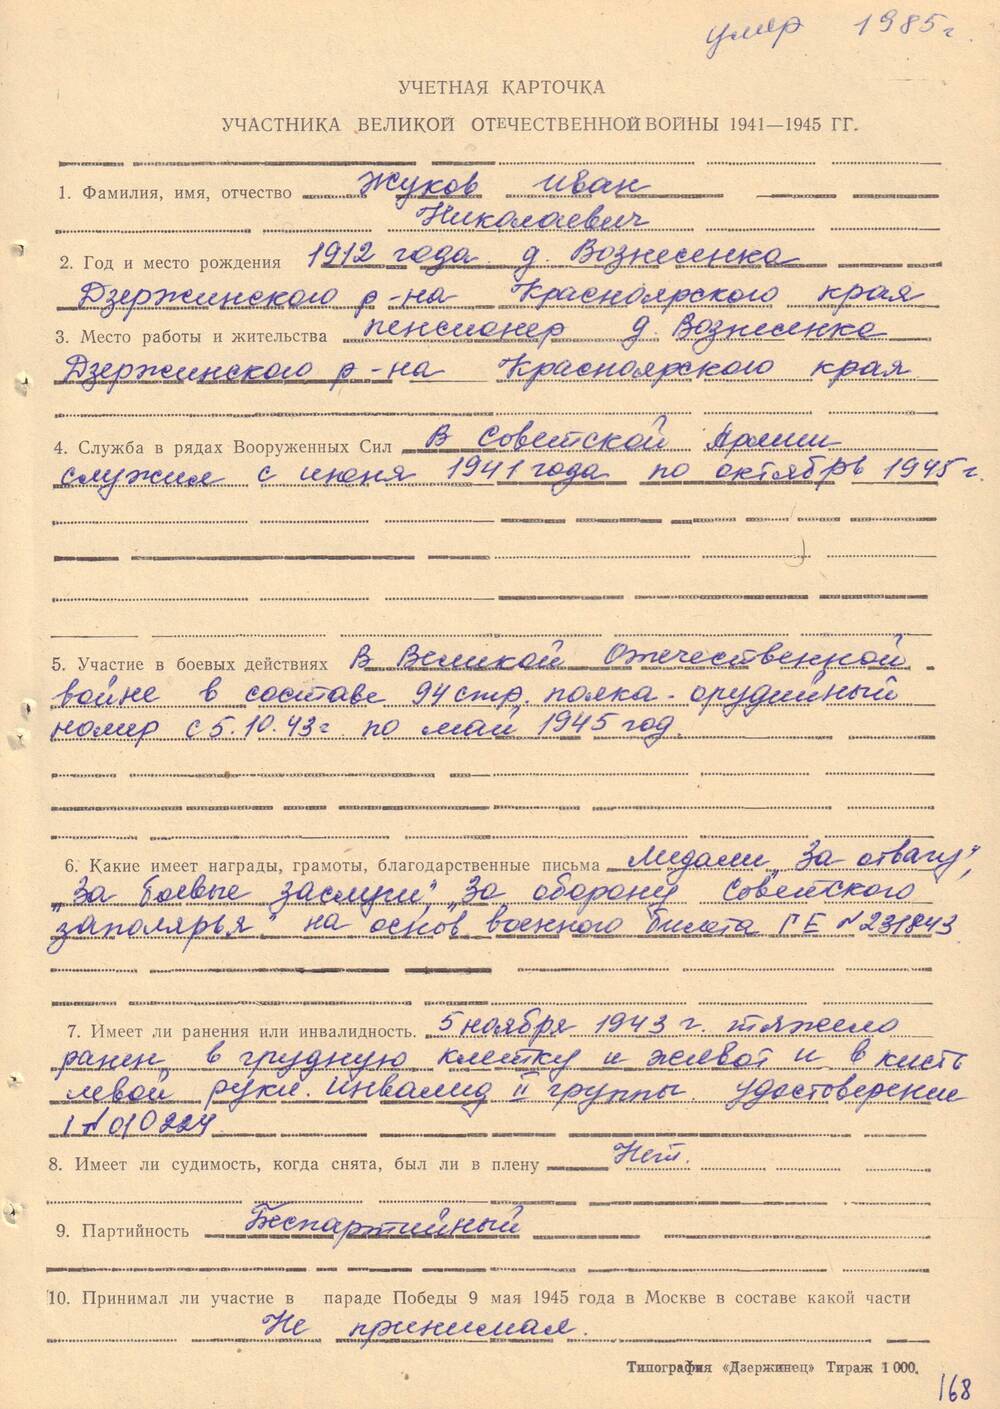 умер 1985 г.
УЧЕТНАЯ КАРТОЧКА
УЧАСТНИКА ВЕЛИКОЙ ОТЕЧЕСТВЕННОЙ ВОЙНЫ 1941—1945 ГГ.
1. Фамилия, имя, отчество Жуков Иван
Николаевич
2. Год и место рождения 1912 года д. Вознесенка
Дзержинского р-на Красноярского края
3. Место работы и жительства пенсионер д. Вознесенка
Дзержинского р-на Красноярского края
4. Служба в рядах Вооруженных Сил В Советской Армии
служил с июня 1941 года по октябрь 1945 г.
5. Участие в боевых действиях В Великой Отечественной
войне в составе 94 стр. полка - орудийный
номер с 5.10.43 г. по май 1945 год.
6. Какие имеет награды, грамоты, благодарственные письма Медали „За отвагу",
„За боевые заслуги", „За оборону Советского
заполярья" на основ военного билета ГЕ № 231843
7. Имеет ли ранения или инвалидность. 5 ноября 1943 г. тяжело
ранен в грудную клетку и живот и в кисть
левой руки. инвалид II группы. удостоверение
1 № 010224
8. Имеет ли судимость, когда снята, был ли в плену Нет.
9. Партийность Беспартийный
10. Принимал ли участие в параде Победы 9 мая 1945 года в Москве в составе какой части
Не принимал.
Типография «Дзержинец» Тираж 1 000.
168